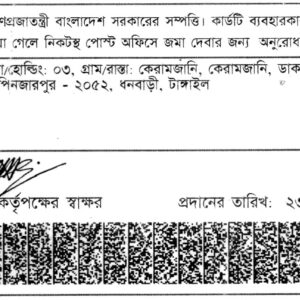 ণপ্রজাতন্ত্রী বাংলাদেশ সরকারের সম্পত্তি। কার্ডটি ব্যবহারকা
া গেলে নিকটস্থ পোস্ট অফিসে জমা দেবার জন্য অনুরোধ
/হোল্ডিং: ০৩, গ্রাম/রাস্তা: কেরামজানি, কেরামজানি, ডাক
পিনজারপুর - ২০৫২, ধনবাড়ী, টাঙ্গাইল
কর্তৃপক্ষের স্বাক্ষর প্রদানের তারিখ: ২